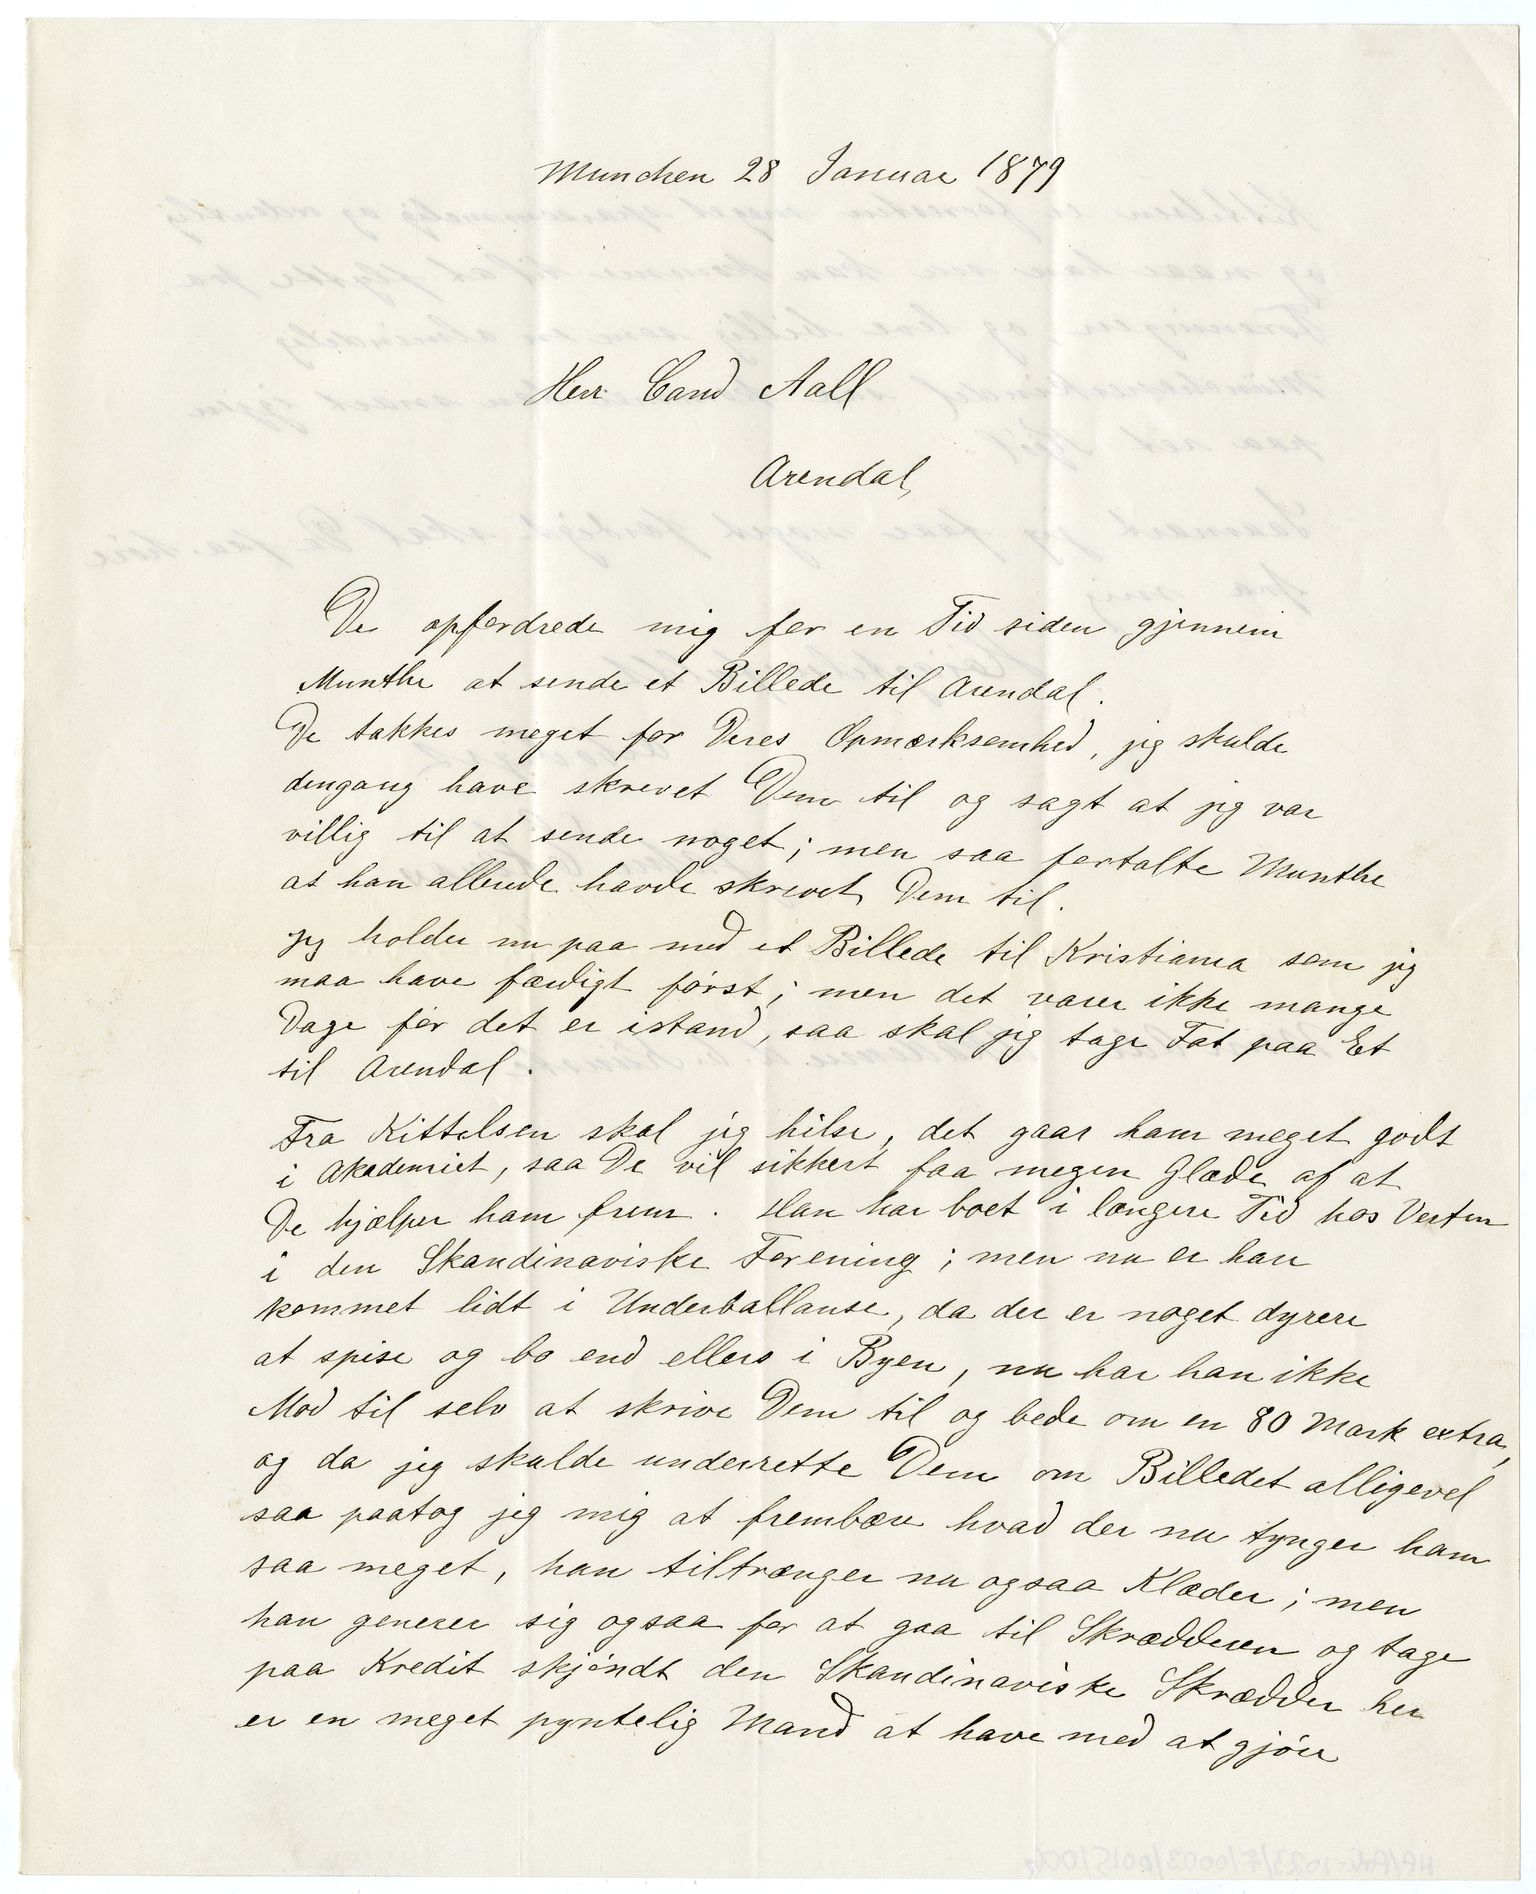 Munchen 28 Januar 1879
Herr Cand Aall
Arendal,
De opfordrede mig for en Tid siden gjennem
Munthe at sende et Billede til Arendal.
De takkes meget for Deres Opmærksomhed, jeg skulde
dengang have skrevet Dem til og sagt at jeg var
villig til at sende noget; men saa fortalte Munthe
at han allerede havde skrevet Dem til.
Jeg holder nu paa med et Billede til Kristiania som jeg
maa have færdigt først; men det varer ikke mange
Dage før det er istand, saa skal jeg tage Fat paa Et
til Arendal.
Fra Kittelsen skal jeg hilse, det gaar ham meget godt
i Akademiet, saa De vil sikkert faa megen Glæde af at
De hjælper ham frem. Han har boet i længere Tid hos Verten
i den Skandinaviske Forening; men nu er han
kommet lidt i Underballanse, da der er noget dyrere
at spise og bo end ellers i Byen, nu har han ikke
Mod til selv at skrive Dem til og bede om en 80 Mark extra,
og da jeg skulde underrette Dem om Billedet alligevel
saa paatog jeg mig at frembære hvad der nu tynger ham
saa meget, han tiltrænger nu ogsaa Klæder; men
han generer sig ogsaa for at gaa til Skrædderen og tage
paa Kredit skjøndt den Skandinaviske Skrædder her
er en meget pyntelig Mand at have med at gjøre